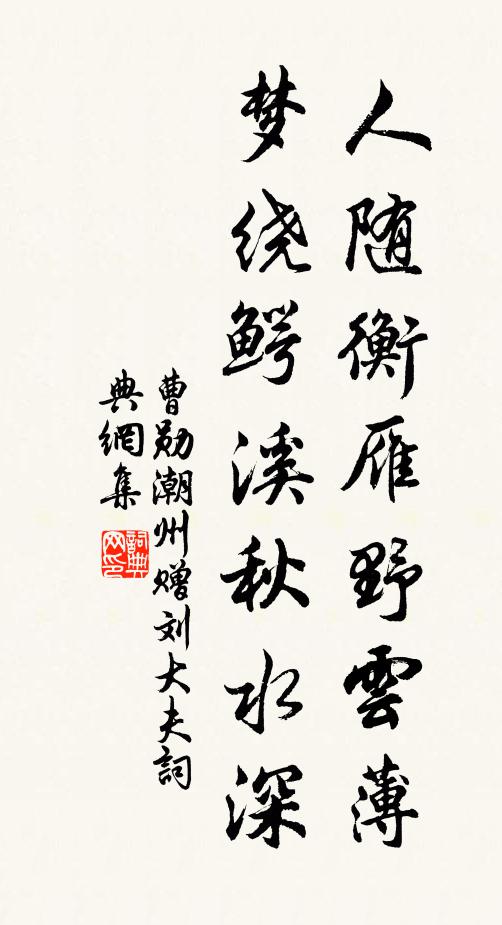 人随衡雁野雲薄
梦绕鳄溪秋水深
曹勋潮州赠刘大夫詞
典網集
詞典
网印